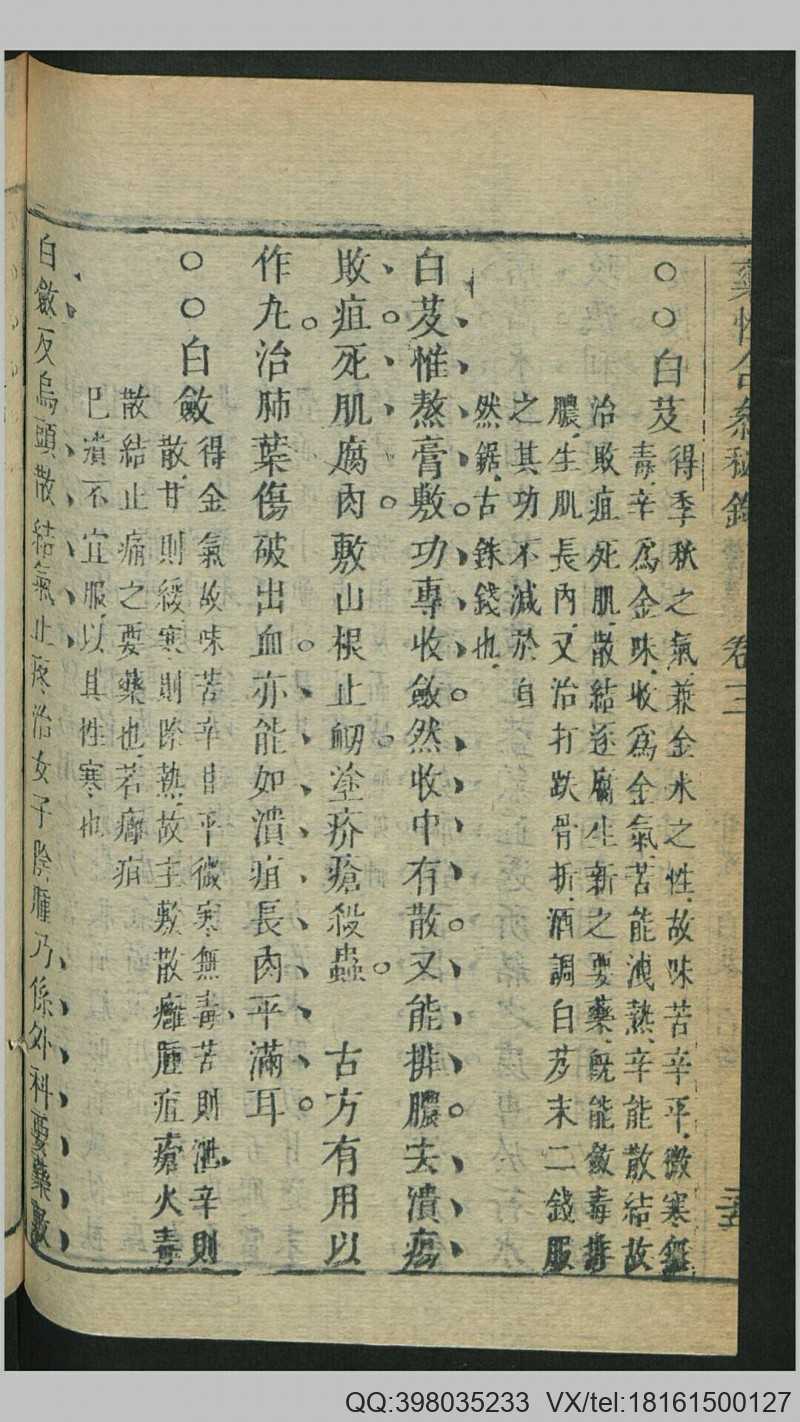 藥性合參秘錄 卷三
○○白芨
得季秋之氣兼金水之性故味苦辛平微寒無
毒辛爲金味收爲金氣苦能洩熱辛能散結故
治敗疽死肌散結逐腐生新之要藥既能斂毒排
膿生肌長肉又治打跌骨折酒調白芨末二錢服
之其功不減於自
然銅古銖錢也
白芨惟熬膏敷功專收斂然收中有散又能排膿夫潰瘍
敗疽死肌腐肉敷山根止衂塗疥瘡殺蟲 古方有用以
作丸治肺葉傷破出血亦能如潰疽長肉平滿耳
○○白斂
得金氣故味苦辛甘平微寒無毒苦則泄辛則
散甘則緩寒則除熱故主敷散癰腫疽瘡火毒
散結止痛之要藥也若癰疽
已潰不宜服以其性寒也
白斂反烏頭散結氣止疼治女子陰腫乃係外科要藥敷
QQ:398035233 VX/tel:18161500127